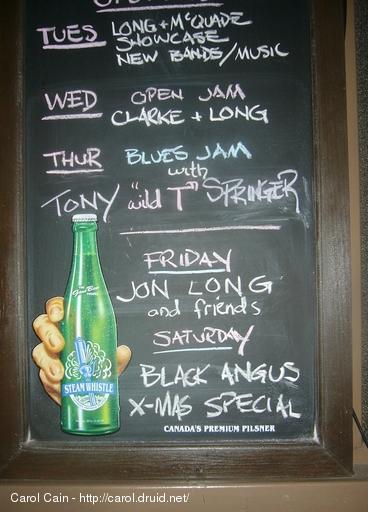 TUES LONG + McQUADE
SHOWCASE
NEW BANDS/MUSIC
WED OPEN JAM
CLARKE + LONG
THUR BLUES JAM
with
TONY "wild T" SPRINGER
FRIDAY
JON LONG
and friends
SATURDAY
BLACK ANGUS
X-MAS SPECIAL
STEAM WHISTLE
CANADA'S PREMIUM PILSNER
Carol Cain - http://carol.druid.net/